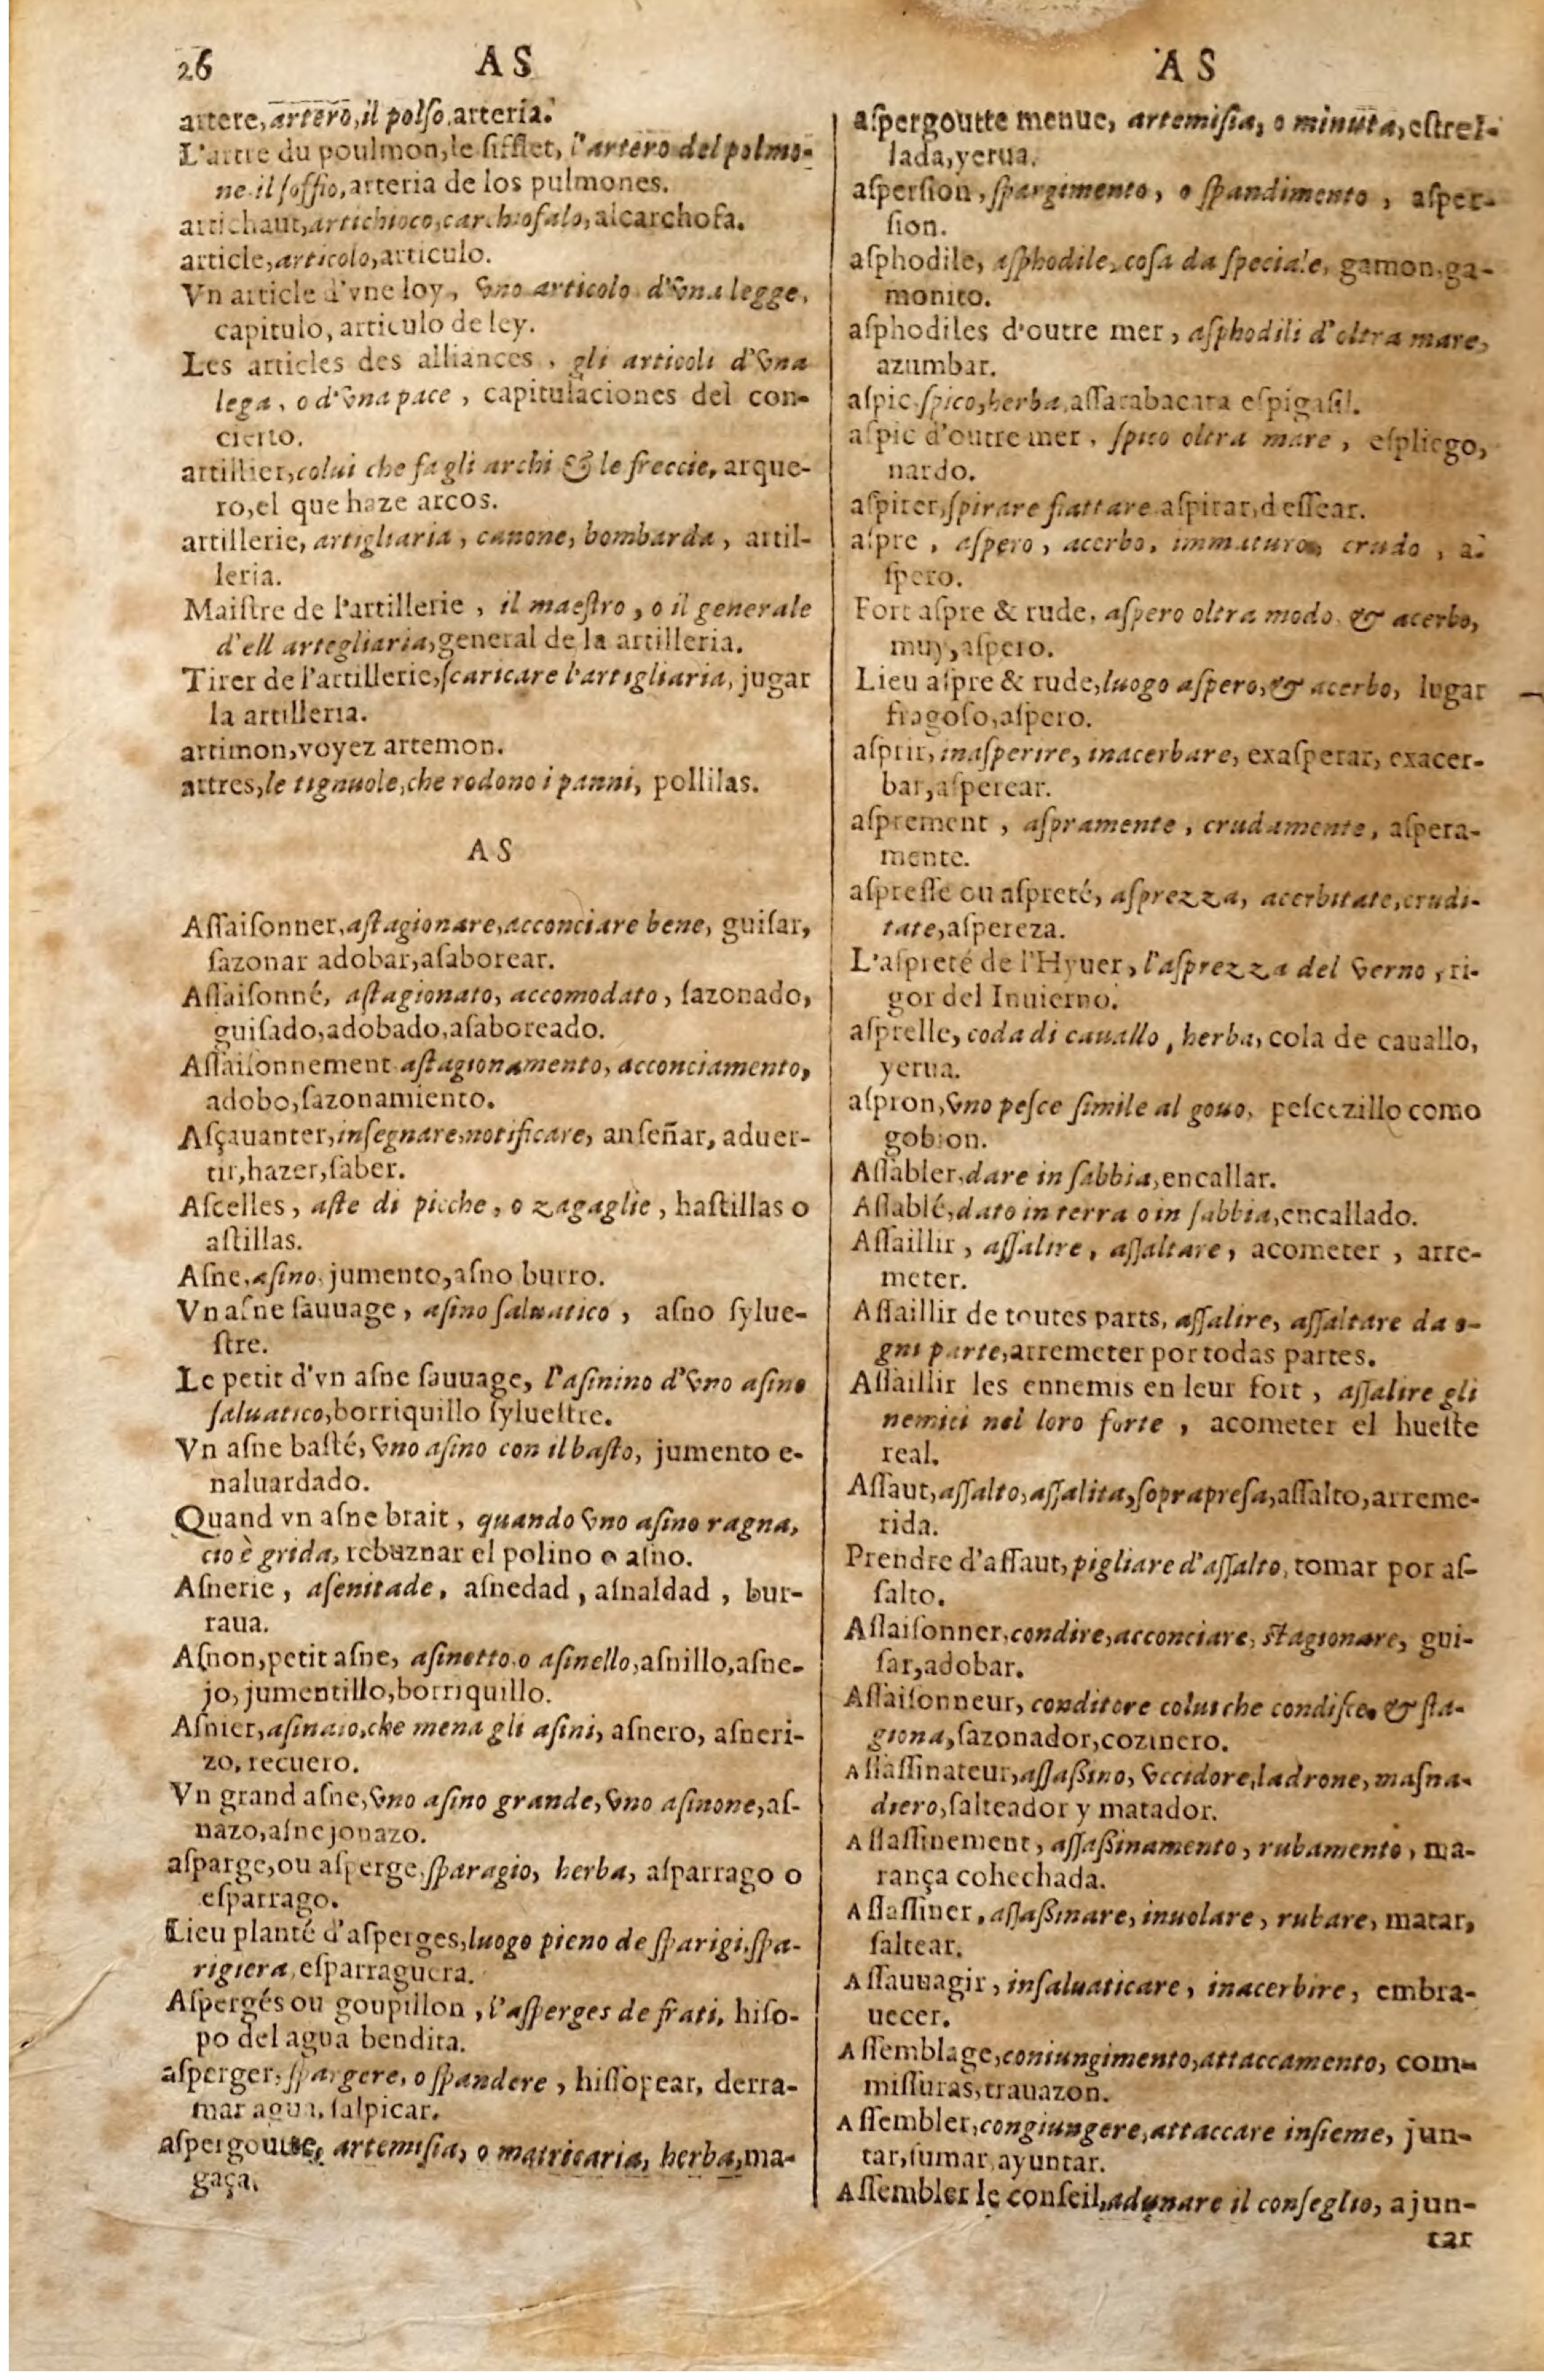 26 AS AS
artere, artero, il polſo, arteria.
L'artre du poulmon, le ſifflet, l'artero del polmo-
ne il ſoffio, arteria de los pulmones.
artichaut, artichioco, carchiofalo, alcarchofa.
article, articolo, articulo.
Vn article d'vne loy, vno articolo d'vna legge,
capitulo, articulo de ley.
Les articles des alliances, gli articoli d'vna
lega, o d'vna pace, capitulaciones del con-
cierto.
artillier, colui che fa gli archi & le freccie, arque-
ro, el que haze arcos.
artillerie, artigliaria, canone, bombarda, artil-
leria.
Maiſtre de l'artillerie, il maeſtro, o il generale
d'ell artegliaria, general de la artilleria.
Tirer de l'artillerie, ſcaricare l'artigliaria, jugar
la artilleria.
artimon, voyez artemon.
artres, le tignuole, che rodono i panni, pollilas.
AS
Aſſaiſonner, aſtagionare, acconciare bene, guiſar,
ſazonar adobar, aſaborear.
Aſſaiſonné, aſtagionato, accomodato, ſazonado,
guiſado, adobado, aſaboreado.
Aſſaiſonnement aſtagionamento, acconciamento,
adobo, ſazonamiento.
Aſçauanter, inſegnare, notificare, anſeñar, aduer-
tir, hazer, ſaber.
Aſcelles, aſte di picche, o zagaglie, haſtillas o
aſtillas.
Aſne, aſino, jumento, aſno burro.
Vn aſne ſauuage, aſino ſaluatico, aſno ſylue-
ſtre.
Le petit d'vn aſne ſauuage, l'aſinino d'vno aſino
ſaluatico, borriquillo ſylueſtre.
Vn aſne baſté, vno aſino con il baſto, jumento e-
naluardado.
Quand vn aſne brait, quando vno aſino ragna,
cio è grida, rebuznar el polino o aſno.
Aſnerie, aſenitade, aſnedad, aſnaldad, bur-
raua.
Aſnon, petit aſne, aſinetto o aſinello, aſnillo, aſne-
jo, jumentillo, borriquillo.
Aſnier, aſinaio, che mena gli aſini, aſnero, aſneri-
zo, recuero.
Vn grand aſne, vno aſino grande, vno aſinone, aſ-
nazo, aſnejonazo.
aſparge, ou aſperge, ſparagio, herba, aſparrago o
eſparrago.
Lieu planté d'aſperges, luogo pieno de ſparigi, ſpa-
rigiera, eſparraguera.
Aſpergés ou goupillon, l'aſperges de frati, hiſo-
po del agua bendita.
aſperger, ſpargere, o ſpandere, hiſſopear, derra-
mar agua, ſalpicar.
aſpergoutte, artemiſia, o matricaria, herba, ma-
gaça.
aſpergoutte menue, artemiſia, o minuta, eſtrel-
lada, yerua.
aſperſion, ſpargimento, o ſpandimento, aſper-
ſion.
aſphodile, aſphodile, coſa da ſpeciale, gamon, ga-
monito.
aſphodiles d'outre mer, aſphodili d'oltra mare,
azumbar.
aſpic, ſpico, herba, aſſarabacara eſpigaſil.
aſpic d'outre mer, ſpico oltra mare, eſpliego,
nardo.
aſpirer, ſpirare fiattare aſpirar, deſſear.
aſpre, aſpero, acerbo, immaturo, crudo, a-
ſpero.
Fort aſpre & rude, aſpero oltra modo, & acerbo,
muy, aſpero.
Lieu aſpre & rude, luogo aſpero, & acerbo, lugar
fragoſo, aſpero.
aſprir, inaſperire, inacerbare, exaſperar, exacer-
bar, aſperear.
aſprement, aſpramente, crudamente, aſpera-
mente.
aſpreſſe ou aſpreté, aſprezza, acerbitate, crudi-
tate, aſpereza.
L'aſpreté de l'Hyuer, l'aſprezza del verno, ri-
gor del Inuierno.
aſprelle, coda di cauallo, herba, cola de cauallo,
yerua.
aſpron, vno peſce ſimile al gouo, peſcezillo como
gobion.
Aſſabler, dare in ſabbia, encallar.
Aſſablé, dato in terra o in ſabbia, encallado.
Aſſaillir, aſſalire, aſſaltare, acometer, arre-
meter.
Aſſaillir de toutes parts, aſſalire, aſſaltare da o-
gni parte, arremeter por todas partes.
Aſſaillir les ennemis en leur fort, aſſalire gli
nemici nel loro forte, acometer el hueſte
real.
Aſſaut, aſſalto, aſſalita, ſoprapreſa, aſſalto, arreme-
tida.
Prendre d'aſſaut, pigliare d'aſſalto, tomar por aſ-
ſalto.
Aſſaiſonner, condire, acconciare, ſtagionare, gui-
ſar, adobar.
Aſſaiſonneur, conditore colui che condiſce, & ſta-
giona, ſazonador, cozinero.
Aſſaſſinateur, aſſaßino, vccidore, ladrone, maſna-
diero, ſalteador y matador.
Aſſaſſinement, aſſaßinamento, rubamento, ma-
rança cohechada.
Aſſaſſiner, aſſaßinare, inuolare, rubare, matar,
ſaltear.
Aſſauuagir, inſaluaticare, inacerbire, embra-
uecer.
Aſſemblage, coniungimento, attaccamento, com-
miſſuras, trauazon.
Aſſembler, congiungere, attaccare inſieme, jun-
tar, ſumar, ayuntar.
Aſſembler le conſeil, adunare il conſeglio, ajun-
tar